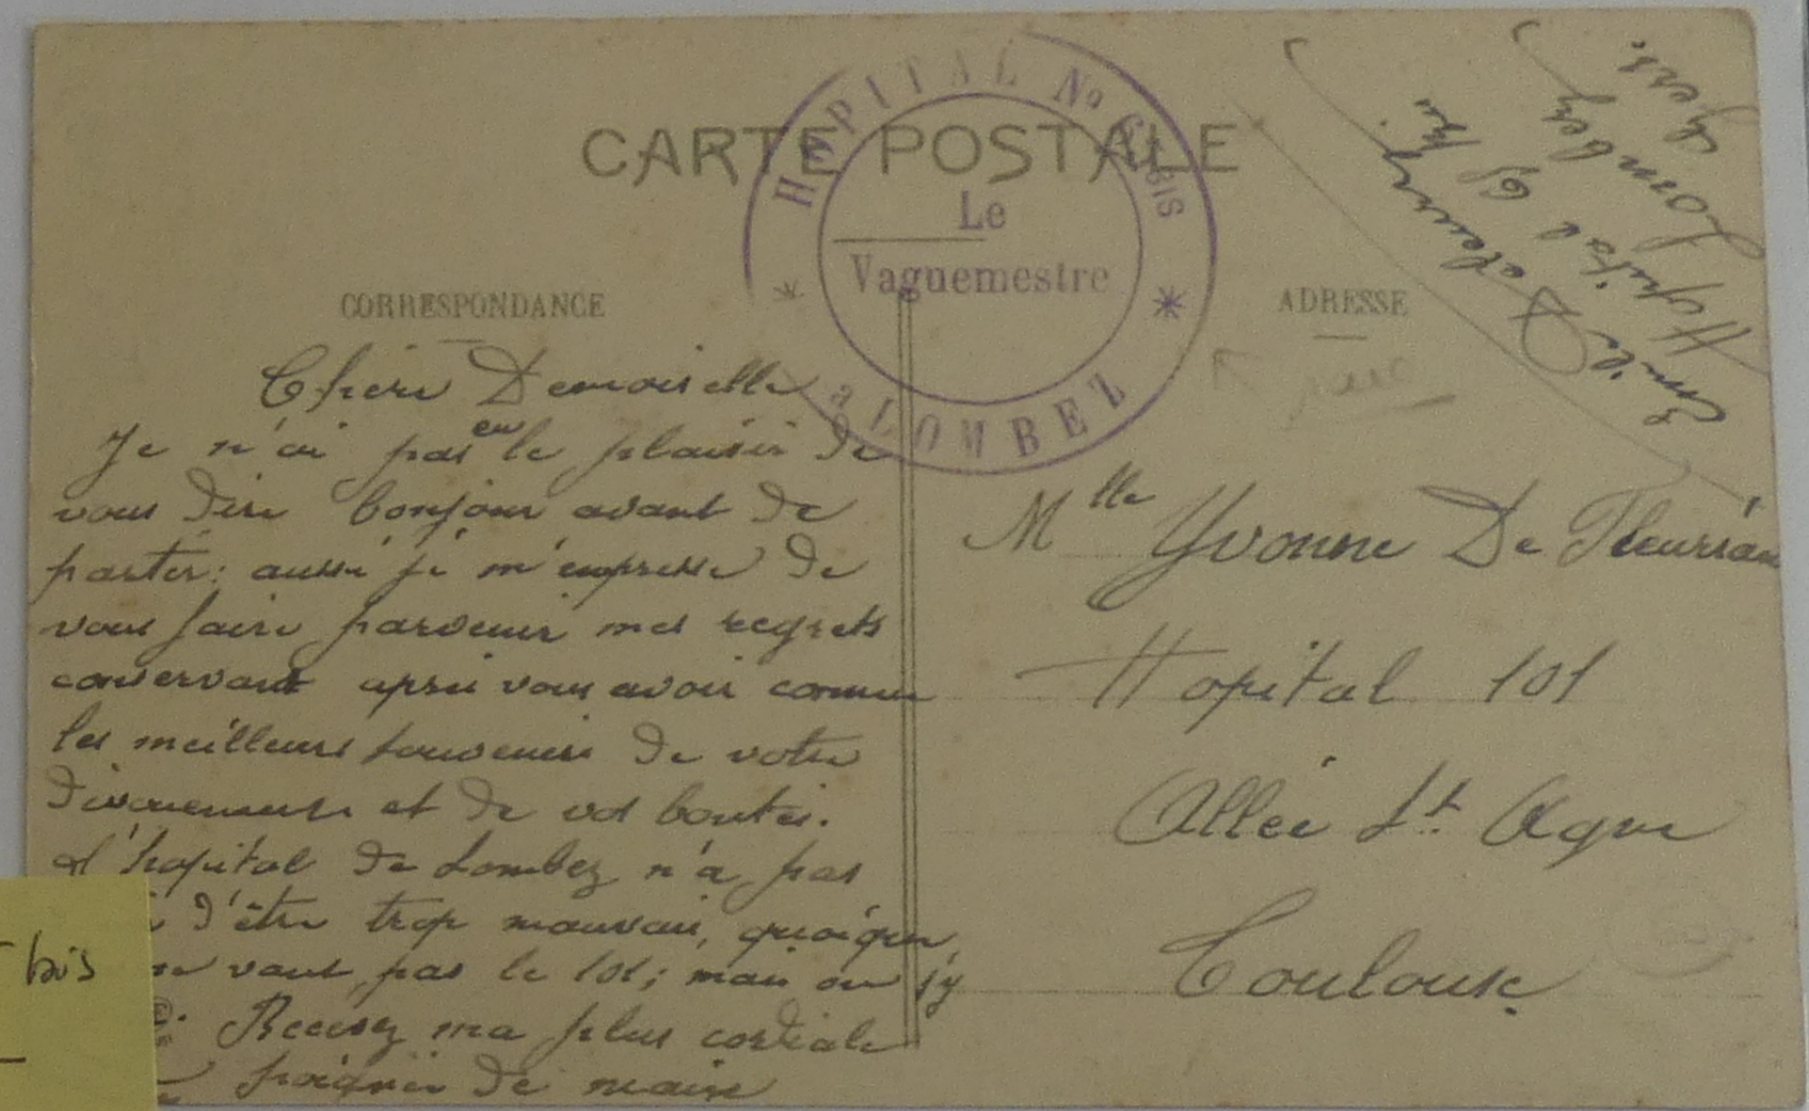 CARTE POSTALE
HOPITAL No 61 BIS
Le
Vaguemestre
a LOMBEZ
CORRESPONDANCE
Chère Demoiselle
Je n'ai pas eu le plaisir de
vous dire bonjour avant de
partir: aussi je m'empresse de
vous faire parvenir mes regrets
conservant après vous avoir connue
les meilleurs souvenirs de votre
dévouement et de vos bontés.
L'hopital de Lombez n'a pas
d'être trop mauvais, quoique
ne vaut pas le 101; mais on s'y
Recevez ma plus cordiale
poignée de main
ADRESSE
rare
Emile Deleury
Hopital 61 bis
Lombez
Gers
Mlle Yvonne De Fleurian
Hopital 101
Allée St. Agne
Toulouse
bis